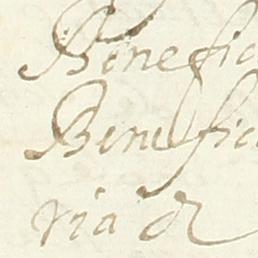 Benefic
Benefici
via de